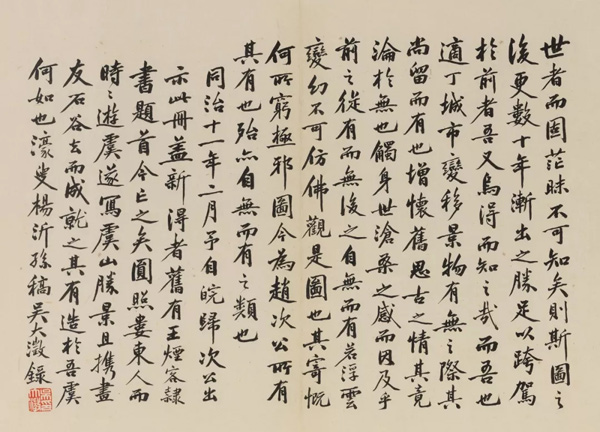 世者而固茫昧不可知矣則斯圖之
後更數十年漸出之勝足以跨駕
於前者吾又烏得而知之哉而吾也
適丁城市變移景物有無之際其
尚留而有也增懷舊思古之情其竟
淪於無也觸身世滄桑之感而因及乎
前之從有而無後之自無而有若浮雲
變幻不可仿佛觀是圖也其寄慨
何所窮極邪圖今為趙次公所有
其有也殆亦自無而有之類也
同治十一年二月予自皖歸次公出
示此冊蓋新得者舊有王煙客隸
書題首今亡之矣圓照婁東人而
時〻遊虞遂寫虞山勝景且攜畫
友石谷去而成就之其有造於吾虞
何如也濠叟楊沂孫稿吳大澂錄